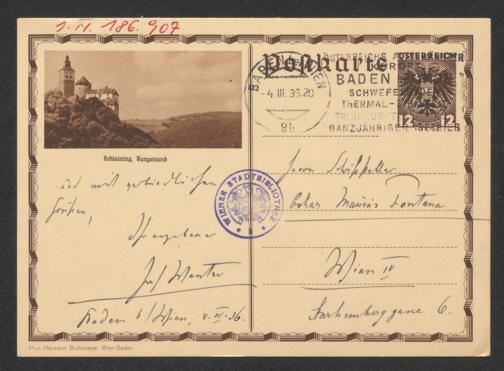 I.N. 186.907
Postkarte
ÖSTERREICH
BADEN
WIEN
-4.III.36.20
9b
BADEN
SCHWEFEL
THERMAL-
TRINKKUR
GANZJÄHRIGER BETRIEB
12 12
Schlaining, Burgenland
und mit verbindlichen
Grüßen,
Ihr ergebener
Baden b/Wien, 4.III.36.
WIENER STADTBIBLIOTHEK
Herrn Schriftsteller
Oskar Maurus Fontana
Wien IV
Starhemberggasse 6.
Phot. Hermann Brühlmeyer, Wien-Baden